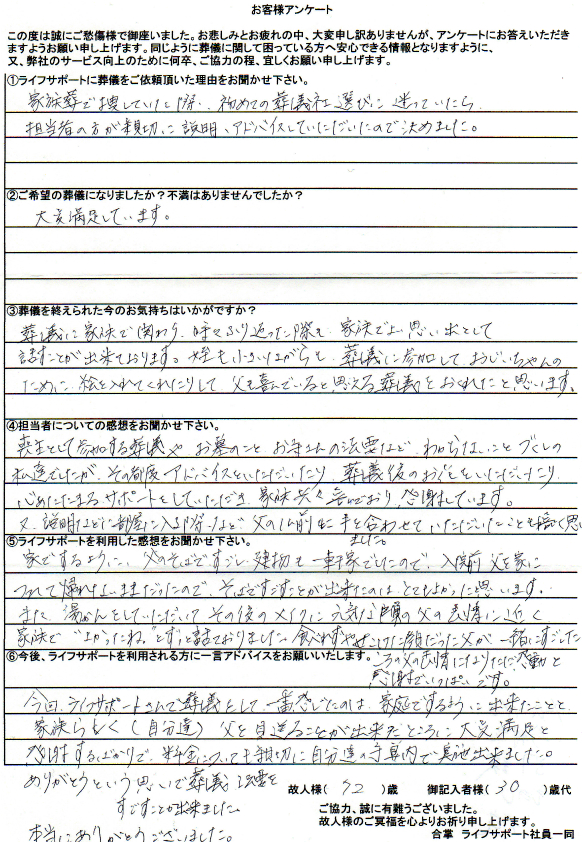 お客様アンケート
この度は誠にご愁傷様で御座いました。お悲しみとお疲れの中、大変申し訳ありませんが、アンケートにお答えいただき
ますようお願い申し上げます。同じように葬儀に関して困っている方へ安心できる情報となりますように、
又、弊社のサービス向上のために何卒、ご協力の程、宜しくお願い申し上げます。
①ライフサポートに葬儀をご依頼頂いた理由をお聞かせ下さい。
家族葬で捜していた際、初めての葬儀社選びに迷っていたら
担当者の方が親切に説明、アドバイスしていただいたので決めました。
②ご希望の葬儀になりましたか？不満はありませんでしたか？
大変満足しています。
③葬儀を終えられた今のお気持ちはいかがですか？
葬儀に家族で関わり、時々ふり返った際も、家族でよい思い出として
話すことが出来ております。姪も小さいながらも、葬儀に参加して、おじいちゃんの
ために、絵を入れてくれたりして 父も喜んでいると思える葬儀をおくれたと思います。
④担当者についての感想をお聞かせ下さい。
喪主として参加する葬儀や お墓のこと お寺さんの法要など わからないことづくしの
私達でしたが その都度アドバイスをいただいたり、葬儀後のお をいただいたり
心あたたまるサポートをしていただき、家族共々喜んでおり、感謝しています。
又、説明などに部屋に入る際など 父の仏前に手を合わせていただいたことも 思い
ました。
⑤ライフサポートを利用した感想をお聞かせ下さい。
家でするように、父のそばですごし 建物も一軒家でしたので、入院前 父を家に
つれて帰れないままだったので、そばですごすことが出来たのはとてもよかったと思います。
また 湯かんをしていただいて その後のメイクに元気な頃の父の表情に近く
家族で "よかったね"とずっと話ておりました。食べれずやせこけた顔だった父が 一緒にすごした
ころの父の表情になりただ感動と
感謝でいっぱいです。
⑥今後、ライフサポートを利用される方に一言アドバイスをお願いいたします。
今回、ライフサポートさんで葬儀をして 一番感じたのは、家庭でするように出来たことと
家族らしく(自分達) 父を見送ることが出来たところに大変満足と
感謝するばかりで、料金についても親切に自分達の予算内で実施出来ました。
ありがとうという思いで葬儀、法要を
すごすことが出来ました。
本当にありがとうございました。
故人様( 72 )歳 御記入者様( 30 )歳代
ご協力、誠に有難うございました。
故人様のご冥福を心よりお祈り申し上げます。
合掌 ライフサポート社員一同